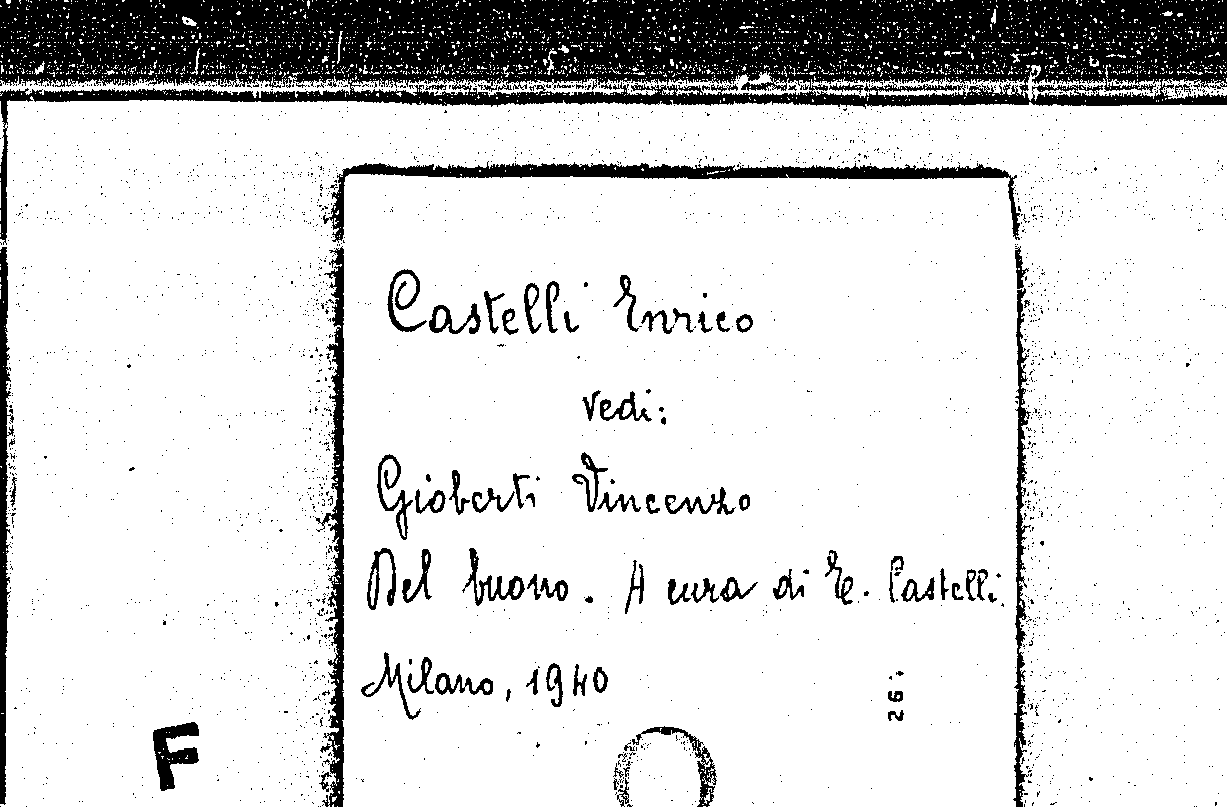 Castelli Enrico
vedi:
Gioberti Vincenzo
Del buono. A cura di E. Castelli.
Milano, 1940
26.
F